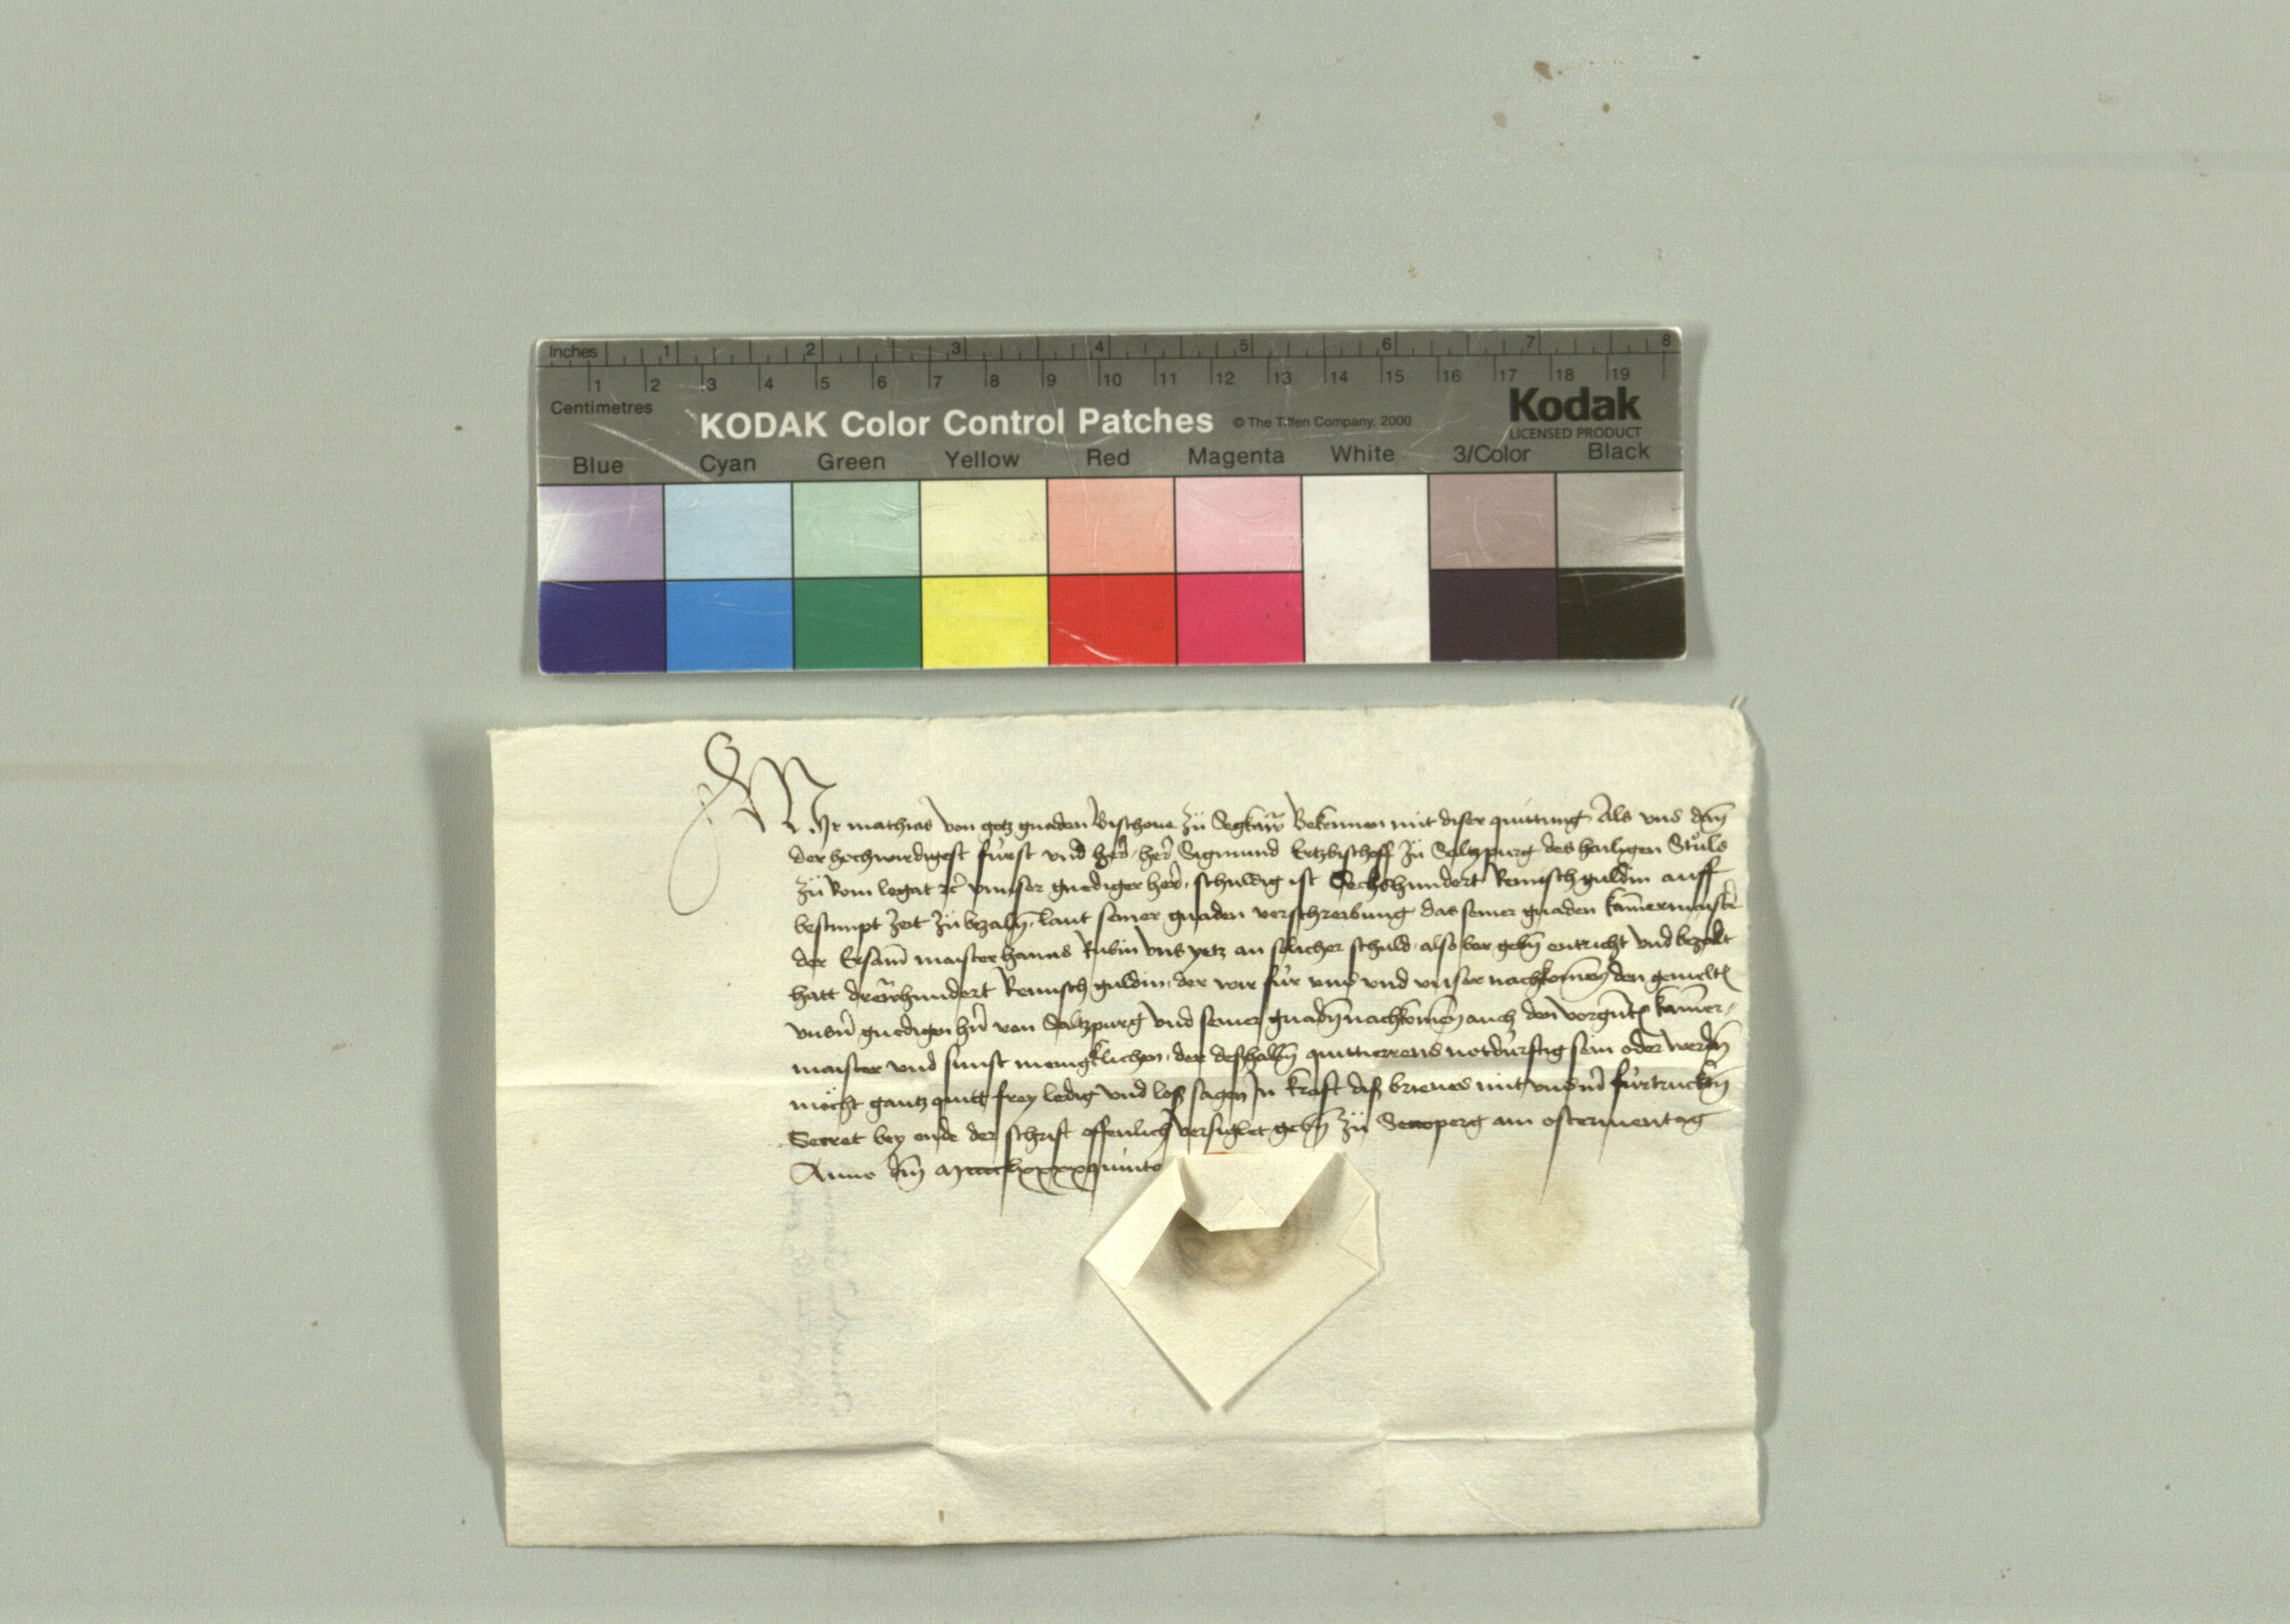 Inches 1 2 3 4 5 6 7 8
1 2 3 4 5 6 7 8 9 10 11 12 13 14 15 16 17 18 19
Centimetres
KODAK Color Control Patches © The Tiffen Company, 2000 Kodak
LICENSED PRODUCT
Blue Cyan Green Yellow Red Magenta White 3/Color Black
Wir mathias von gotz gnaden Bischoue zü Segkaw Bekennen mit diser quittung Als vns dan̄
der hochwirdigest fürst vnd her̄ her̄ Sigmund Ertzbischoff zü Saltzpurg des hailigen Stůls
zü Rom legat ꝛc̄ vnnser gnediger her̄ schuldig ist Sechshundert Reinisch guldin auff
bestimpt zeit zübezaln̄ laut seiner gnaden verschreibung das seiner gnaden kam̄ermaister̄
der Ersam̄ maister hanns Rubin vns yetz an solicher schuld also bar gebn̄ entricht vnd bezalt
hatt drewhundert Reinisch guldin der wir für vns vnd vnser nachkom̄en den gemelt
vnsn̄ gnedigen hn̄ von Saltzpurg vnd seiner gnadn̄ nachkom̄en auch den vorgn̄t kam̄er
maister vnd sunst menigklichen der deshalbn̄ quittierens notdürftig sein oder werdn̄
möcht gantz quitt frey ledig vnd loß sagen In kraft diß brieues mit vnsm̄ fürtrucktn̄
Secret bey ende der schrift offenlich versiglet gebn̄ zü am ostermentag
Anno dm̄ Mcccclxxxxquinto